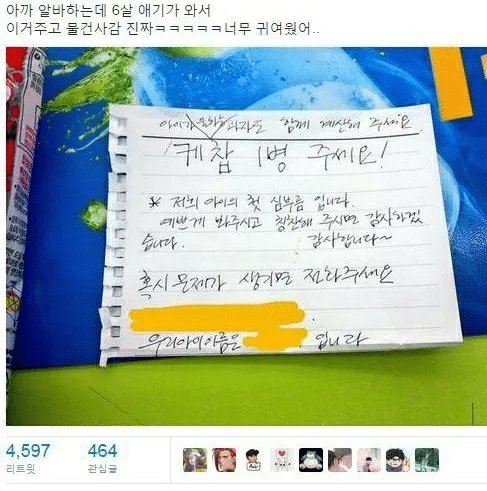 아까 알바하는데 6살 애기가 와서
이거주고 물건사감 진짜ㅋㅋㅋㅋㅋ너무 귀여웠어..
아이가 원하는 과자도 함께 계산해 주세요
케찹 1병 주세요!
※ 저희 아이의 첫 심부름 입니다.
예쁘게 봐주시고 칭찬해 주시면 감사하겠
습니다. 감사합니다~
혹시 문제가 생기면 전화주세요
우리아이이름은 입니다
4,597 464
리트윗 관심글